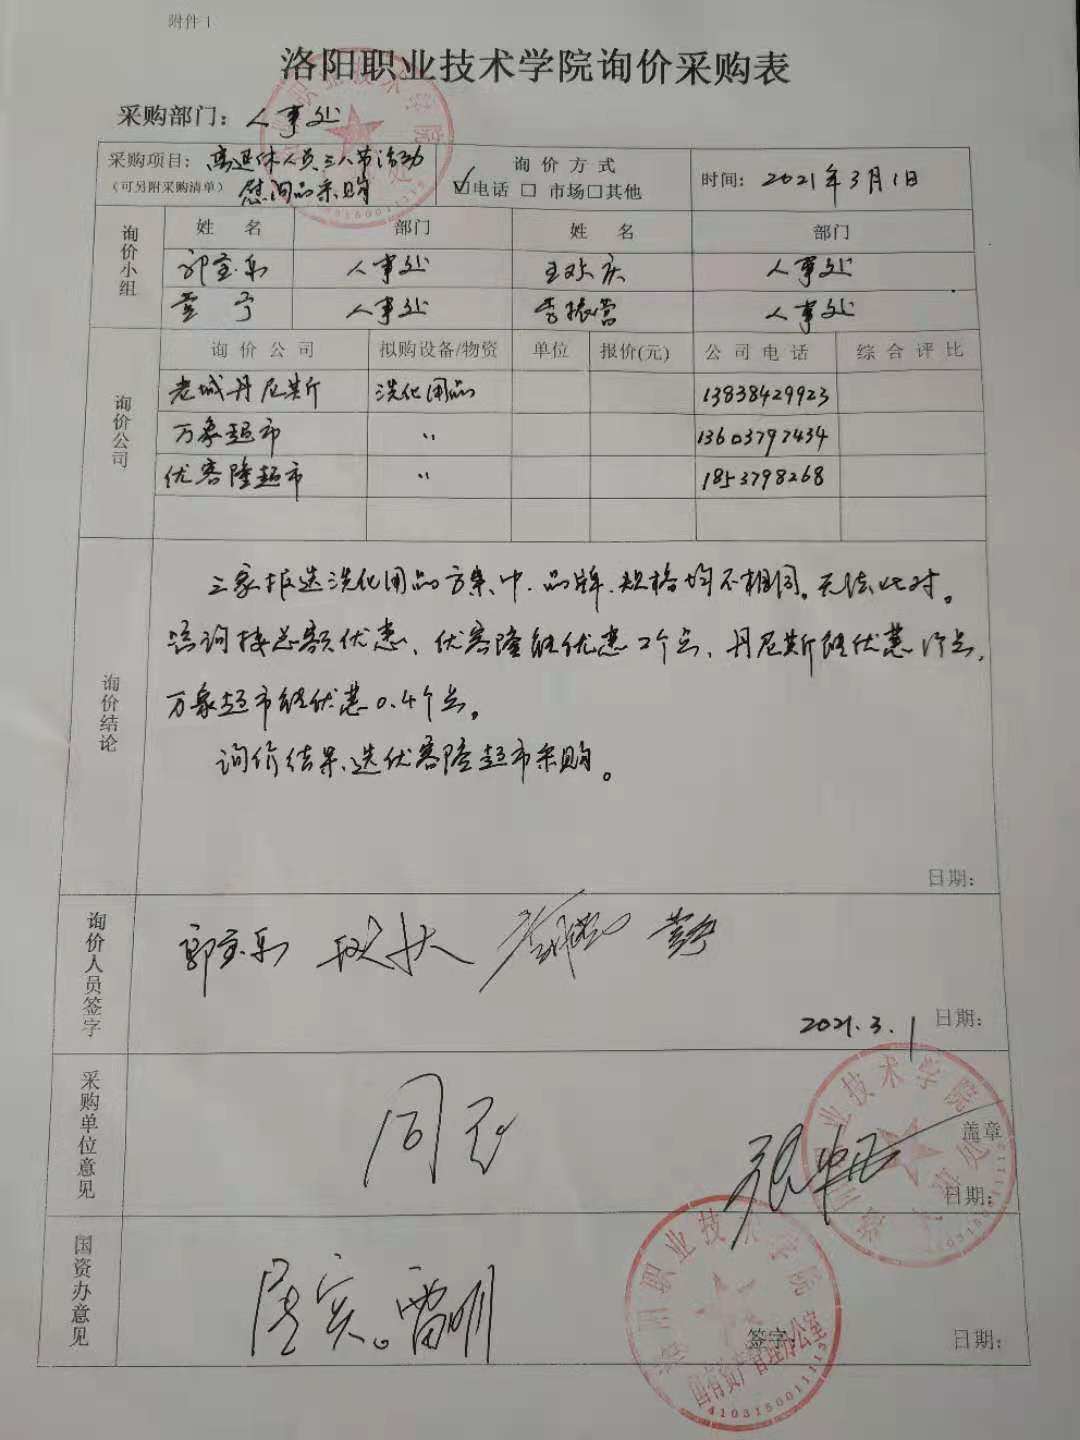 附件 1
洛阳职业技术学院询价采购表
采购部门：人事处
采购项目：离退休人员三八节活动
（可另附采购清单）慰问品采购
询价方式
☑电话 □ 市场□其他
时间：2021年3月1日
询价小组
姓 名 部门 姓 名 部门
郭宝乐 人事处 人事处
人事处 李振营 人事处
询价公司
询价公司 拟购设备/物资 单位 报价(元) 公司电话 综合评比
老城丹尼斯 洗化用品 13838429923
万象超市 〃 13603797434
优客隆超市 〃 1853798268
询价结论
三家报送洗化用品方案中、品牌、规格均不相同。无法比对。
咨询按总额优惠、优客隆能优惠2个点、丹尼斯能优惠1个点，
万象超市能优惠0.4个点。
询价结果、选优客隆超市采购。
日期：
询价人员签字
郭宝乐
2021.3.1 日期：
采购单位意见
同意
盖章
日期：
国资办意见
属实。雷明
签字： 日期：
洛阳职业技术学院
国有资产管理办公室
4103150011115